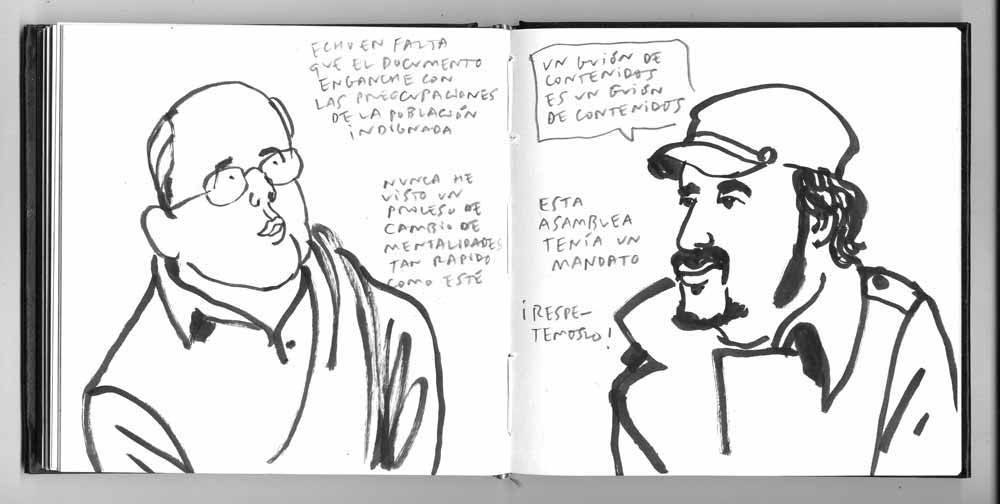 ECHO EN FALTA
QUE EL DOCUMENTO
ENGANCHE CON
LAS PREOCUPACIONES
DE LA POBLACIÓN
INDIGNADA
NUNCA HE
VISTO UN
PROCESO DE
CAMBIO DE
MENTALIDADES
TAN RAPIDO
COMO ESTÉ
UN GUIÓN DE
CONTENIDOS
ES UN GUIÓN
DE CONTENIDOS
ESTA
ASAMBLEA
TENÍA UN
MANDATO
¡RESPE-
TEMOSLO!